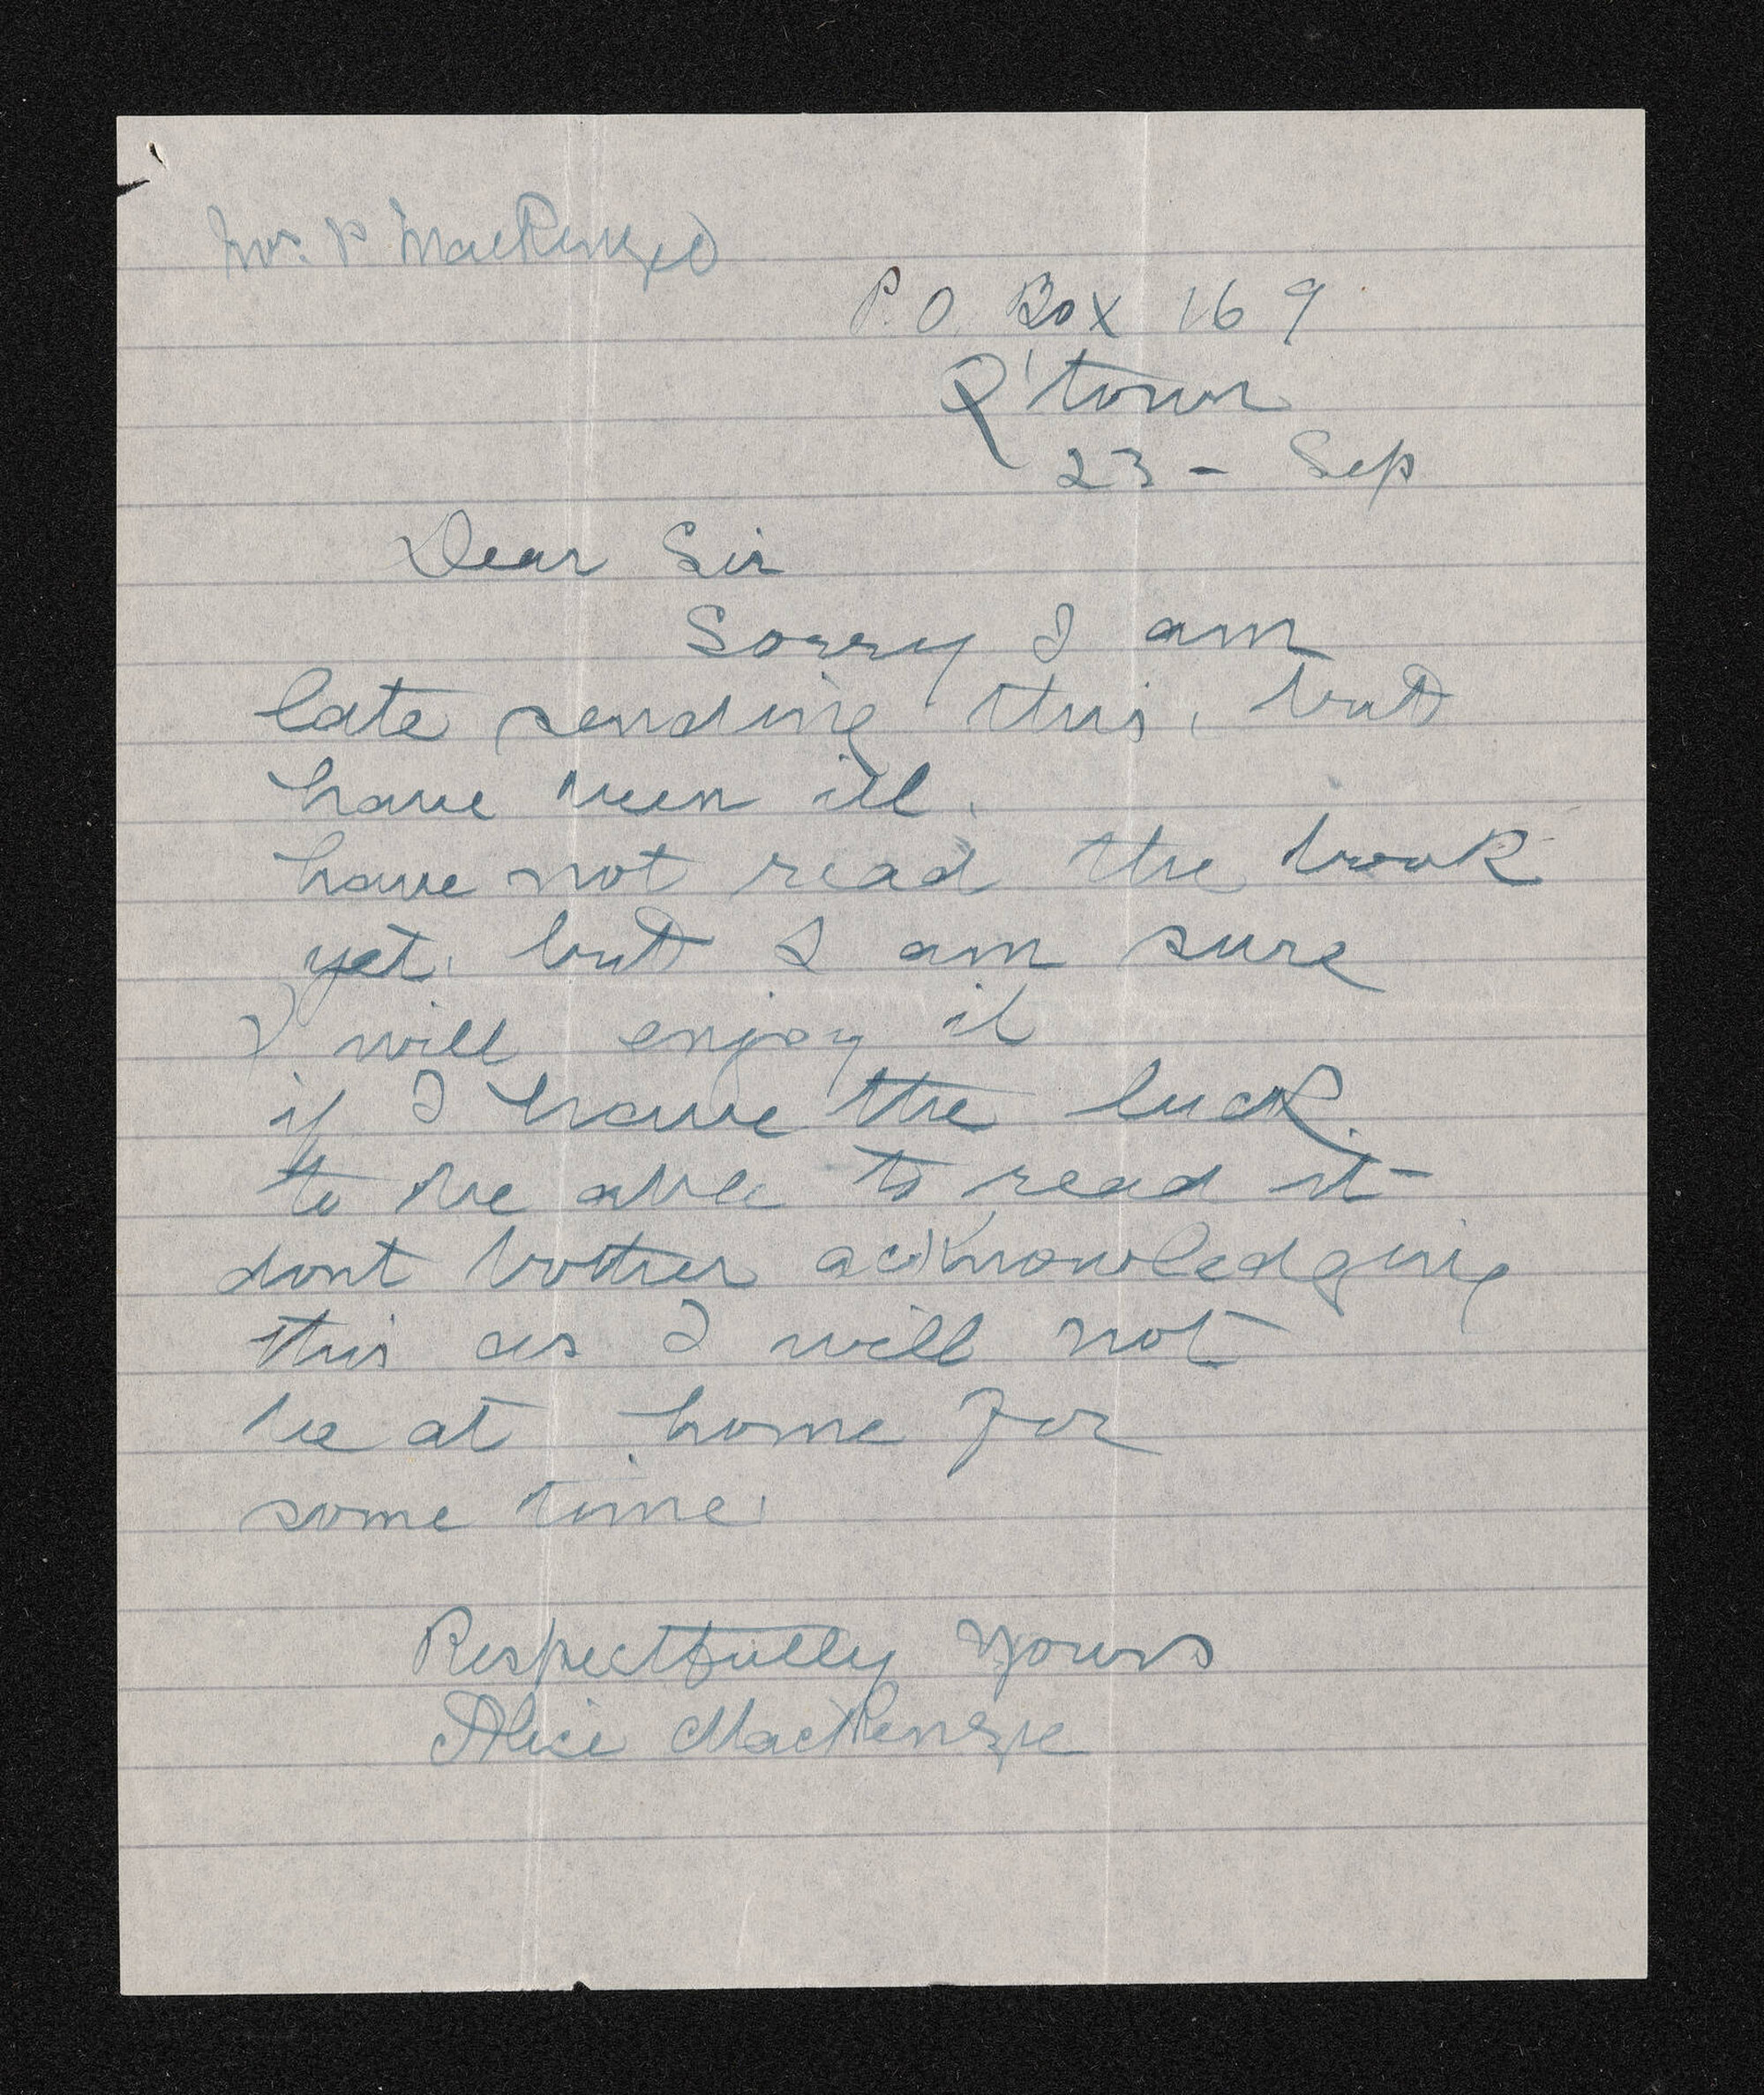 Mrs. P MacKenzie
P.O. Box 169
Q'town
23 - Sep
Dear Sir
Sorry I am
late sending this, but
have been ill.
have not read the book
yet. but I am sure
I will enjoy it
if I have the luck
to be able to read it
dont bother acknowledging
this as I will not
be at home for
some time.
Respectfully Yours
Alice MacKenzie